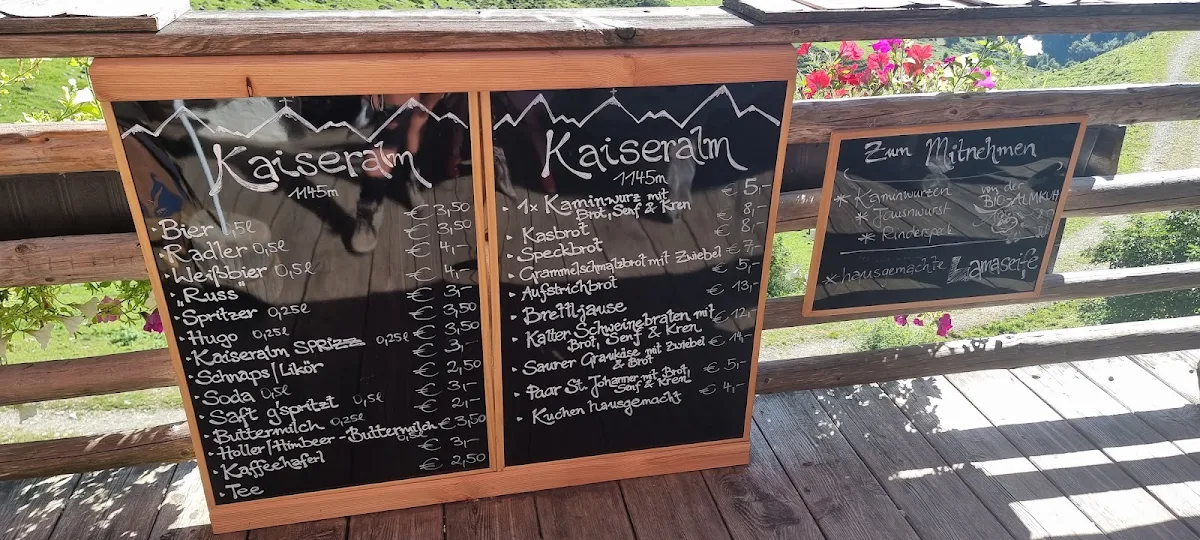 Kaiseralm
1145m
Bier 0,5l € 3,50
Radler 0,5l € 3,50
Weißbier 0,5l € 4,-
"Russ" € 4,-
Spritzer 0,25l € 3,-
Hugo 0,25l € 3,50
Kaiseralm SPRIZZ 0,25l € 3,50
Schnaps/Likör € 3,-
Soda 0,5l € 2,50
Saft g'spritzt 0,5l € 3,-
Buttermilch 0,25l € 2,-
Holler/Himbeer-Buttermilch € 3,50
0,5l
Kaffeehaferl € 3,-
Tee € 2,50
Kaiseralm
1145m
1x Kaminwurz mit € 5,-
Brot, Senf & Kren
Kasbrot € 8,-
Speckbrot € 8,-
Grammelschmalzbrot mit Zwiebel € 7,-
Aufstrichbrot € 5,-
Brettljause € 13,-
Kalter Schweinebraten mit € 12,-
Brot, Senf & Kren
Saurer Graukäse mit Zwiebel € 14,-
& Brot
Paar St. Johanner mit Brot, € 5,-
Senf & Kren
Kuchen hausgemacht € 4,-
Zum Mitnehmen
* Kaminwurzen
* Jausnwurst
* Rinderspeck
von der
BIO-ALMKUH
* hausgemachte Lamaseife